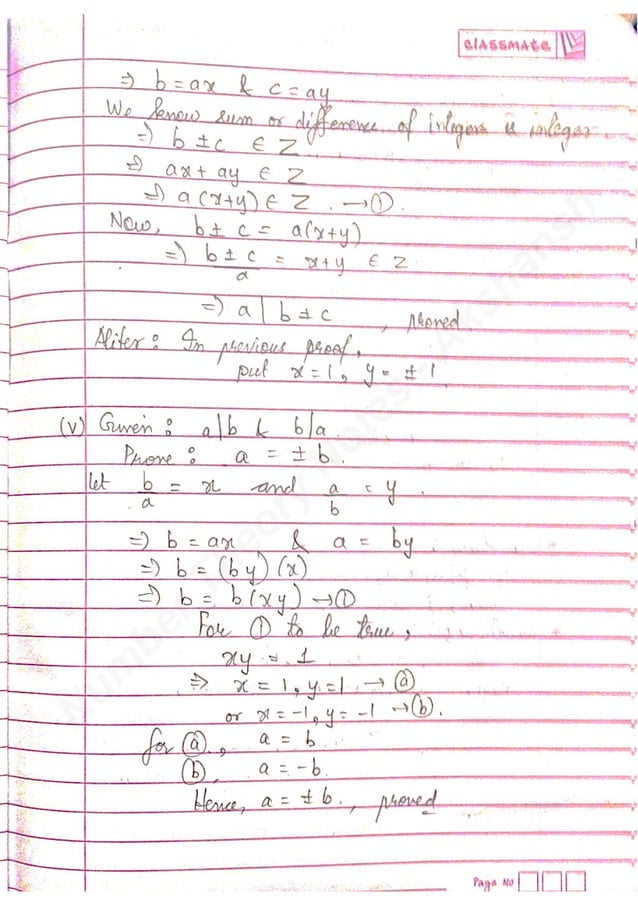 classmate
⇒ b = ax & c = ay
We know sum or difference of integers is integer.
⇒ b ± c ∈ Z
⇒ ax + ay ∈ Z
⇒ a(x+y) ∈ Z. → ①.
Now, b ± c = a(x+y)
⇒ b ± c / a = x+y ∈ Z
⇒ a | b ± c , proved
Aliter: In previous proof,
put x = 1, y = ± 1
(v) Given: a|b & b|a.
Prove: a = ± b.
let b/a = x and a/b = y.
⇒ b = ax & a = by
⇒ b = (by)(x)
⇒ b = b(xy) → ①
For ① to be true,
xy = 1
⇒ x = 1, y = 1 → ⓐ
or x = -1, y = -1 → ⓑ.
for ⓐ, a = b
ⓑ, a = -b.
Hence, a = ± b., proved
Page No
Number Theory Notes - Akshansh